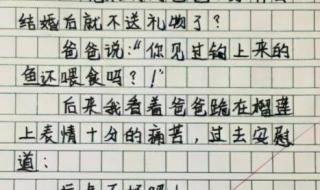 结婚后就不送礼物了？
爸爸说："你见过钩上来的
鱼还喂食吗？！"
后来我看着爸爸跪在榴莲
上表情十分的痛苦，过去安慰
道：